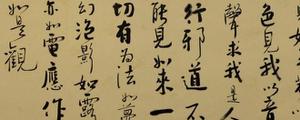 色見我以音
聲求我是人
行邪道不
能見如來一
切有為法如夢
幻泡影如露
亦如電應作
如是觀